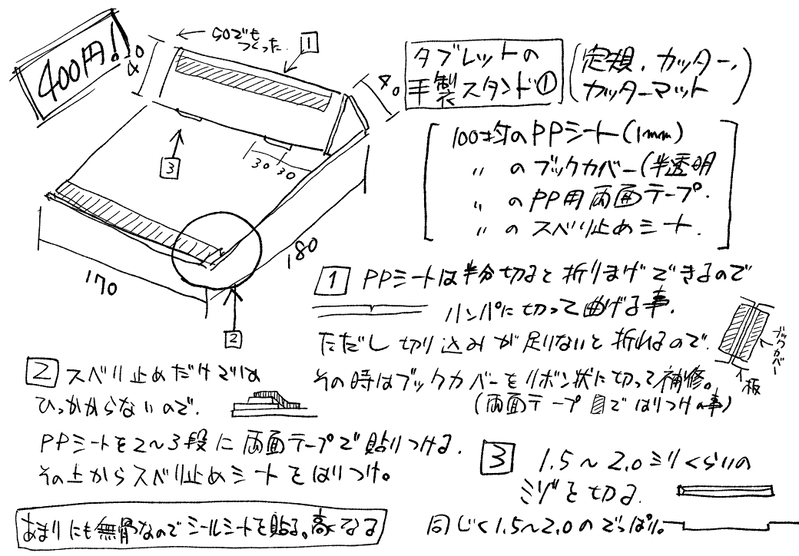 400円!
40
50でも
つくった
1
40
タブレットの
手製スタンド①
(定規、カッター、
カッターマット)
100均のPPシート(1mm)
〃 のブックカバー(半透明
〃 のPP用両面テープ.
〃 のスベリ止めシート.
3
30 30
170
180
2
1 PPシートは半分切ると折りまげできるので
ハンパに切って曲げる事.
ただし切り込みが足りないと折れるので.
その時はブックカバーをリボン状に切って補修。
(両面テープ ではりつけ事)
ブックカバー
板
2 スベリ止めだけでは
ひっかからないので.
PPシートを2〜3段に両面テープで貼りつける.
その上からスベリ止めシートをはりつけ。
あまりにも無骨なのでシールシートを貼る。高くなる
3 1.5〜2.0ミリくらいの
ミゾを切る.
同じく1.5〜2.0のでっぱり.